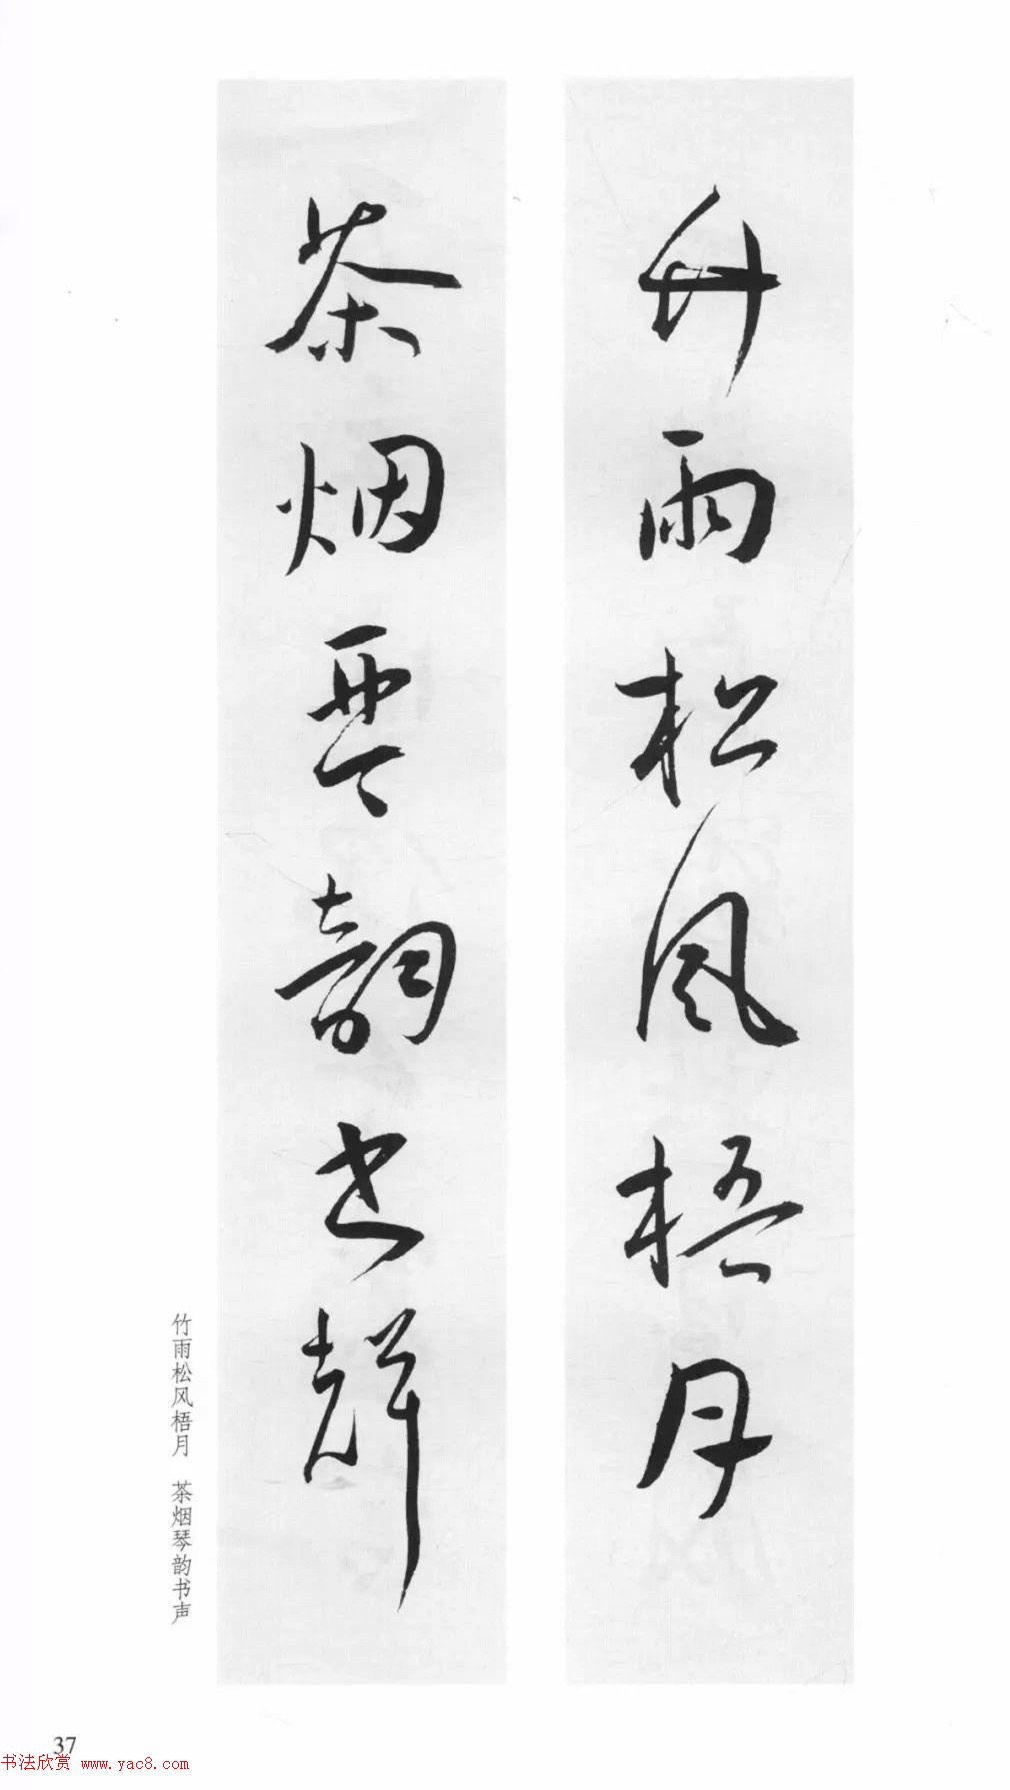 竹雨松风梧月
茶烟琴韵书聲
竹雨松风梧月 茶烟琴韵书声
37
书法欣赏 www.yac8.com